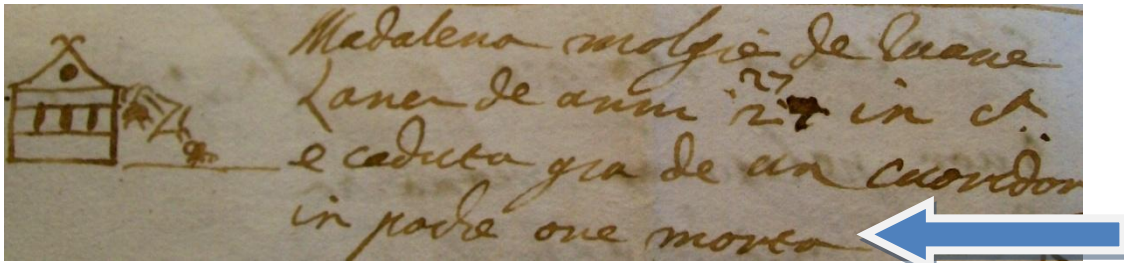 Madalena molgie de Zuane
Zaner de anni 27 27 in c.ª
e caduta gra de un cuoridor
in poche ore morta